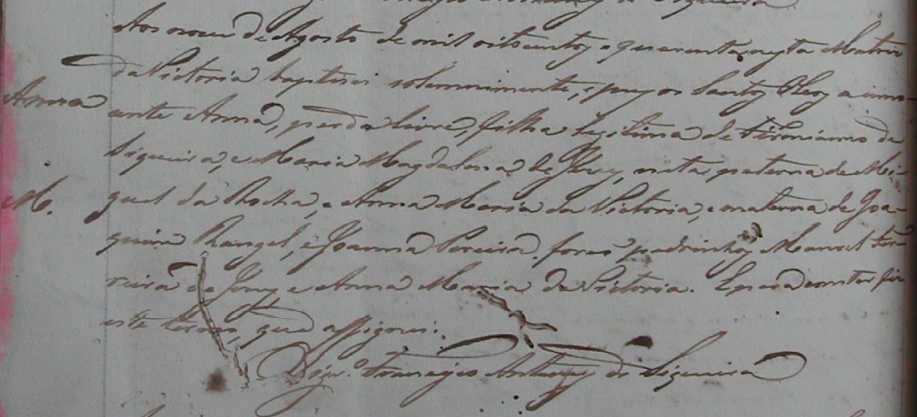 Aos nove de Agosto de mil oitocentos e quarenta nesta Matriz
da Victoria baptisei solemnimente, e puz os Santos Oleos a inno-
Anna
cente Anna, parda livre, filha legitima de Firmiano de
Siqueira, e Maria Magdalena de Jesus, neta paterna de Mi-
M.
guel da Rocha, e Anna Maria da Victoria, e materna de Joa-
quim Rangel, e Joanna Pereira. foraõ padrinhos Manoel Fer-
reira de Jesus e Anna Maria da Victoria. E para constar fiz
este termo, que assignei.
Antunes de Siqueira